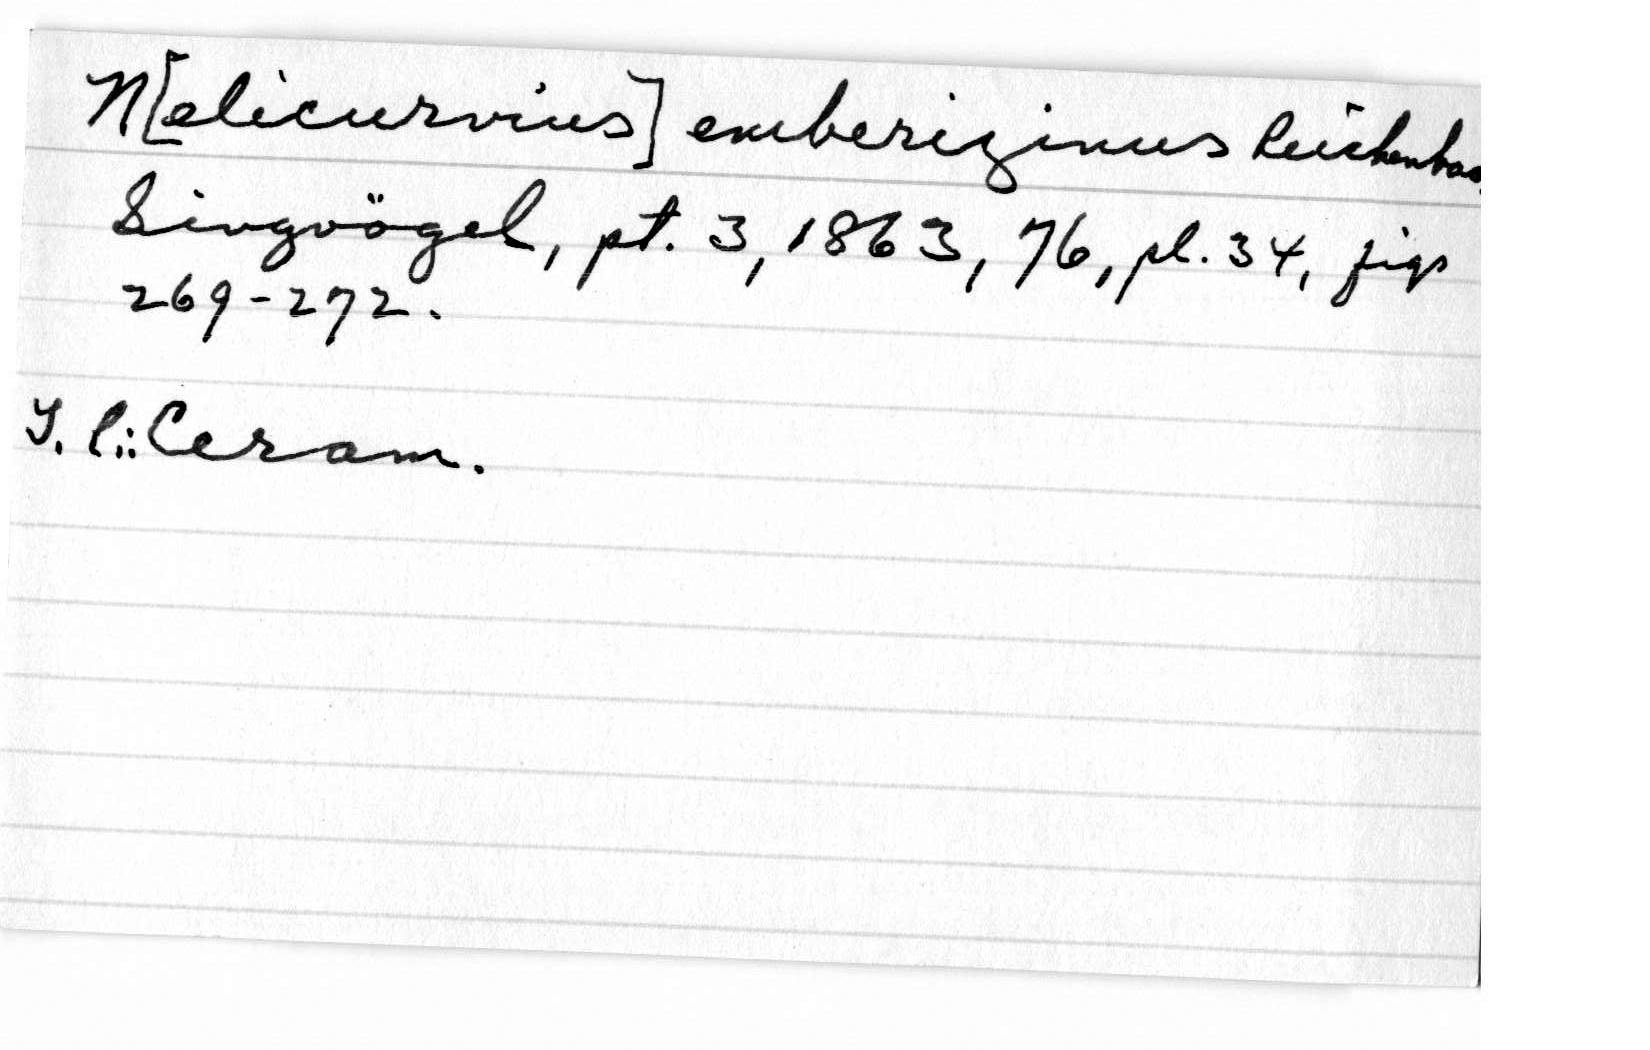 N[elicurvius] emberizinus Reichenbac
Singvögel, pt. 3, 1863, 76, pl. 34, figs
269-272.
T. l.: Ceram.